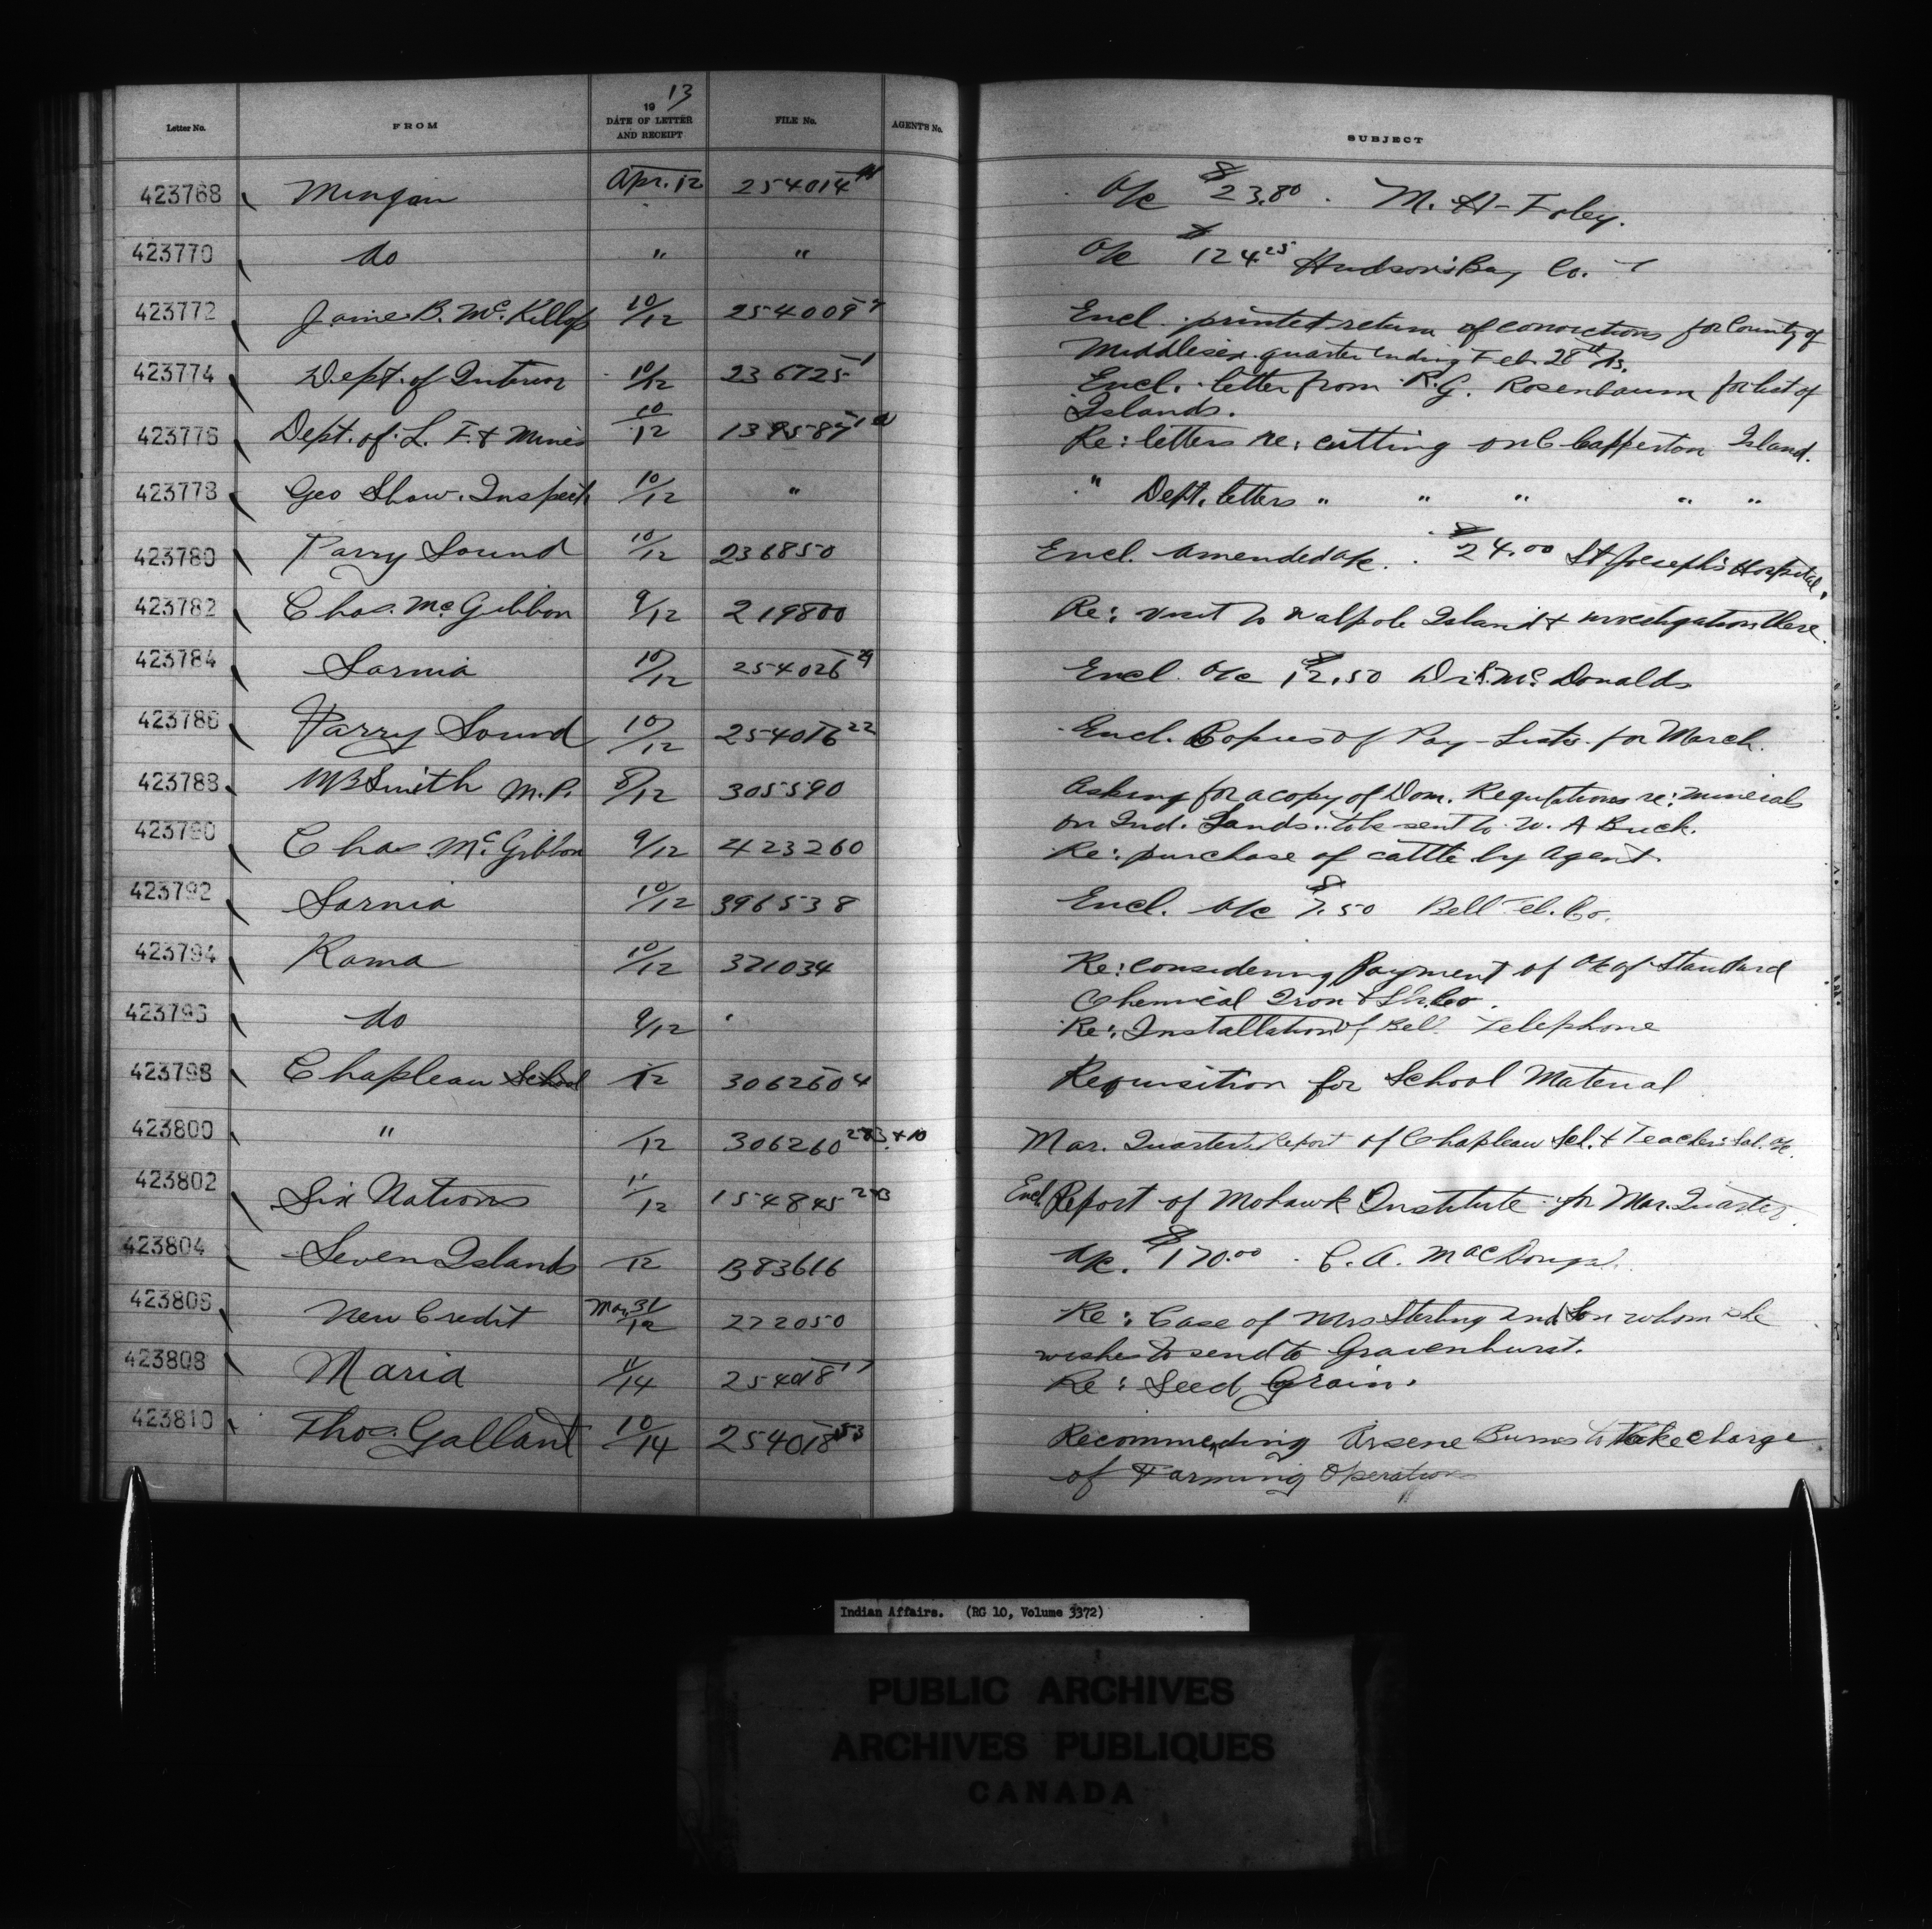 Letter No. FROM 1913 DATE OF LETTER AND RECEIPT FILE No. AGENT'S No. SUBJECT
423768 Mingan Apr. 12 254014 A/c $23.80 . M. H. Foley.
423770 do " " A/c $124.25 Hudson's Bay Co.
423772 James B. McKillop 10/12 254009 Encl. printed return of convictions for County of
Middlesex quarter ending Feb. 28th /13.
423774 Dept. of Interior 10/12 236725-1 Encl. letter from R.G. Rosenbaum for list of
Islands.
423776 Dept. of L. F. & Mines 10/12 Re: letters re: cutting on Clapperton Island.
423778 Geo Shaw. Inspect. 10/12 " " Dept. letters " " " " "
423780 Parry Sound 10/12 236850 Encl. amended a/c. $24.00 St Joseph's Hospital.
423782 Chas. McGibbon 9/12 219800 Re: visit to Walpole Island & investigation there.
423784 Sarnia 10/12 254026-29 Encl. a/c $12.50 Dr. McDonald
423786 Parry Sound 10/12 254016-22 Encl. Copies of Pay-Lists for March.
423788 Smith M.P. 8/12 305590 Asking for a copy of Dom. Regulations re: minerals
on Ind. Lands. to be sent to W. A Buck.
423790 Chas McGibbon 9/12 423260 Re: purchase of cattle by Agent.
423792 Sarnia 10/12 396538 Encl. a/c $7.50 Bell Tel. Co.
423794 Rama 10/12 371034 Re: considering Payment of a/c of Standard
Chemical Iron &
423796 do 9/12 " Re: Installation of Bell Telephone
423798 Chapleau School /12 306260 4 Requisition for School Material
423800 " /12 306260 2&3 & 10 Mar. Quarter. Report of Chapleau Sch. & Teacher's Sal. a/c.
423802 Six Nations 11/12 154845 2&3 Encl. Report of Mohawk Institute for Mar. Quarter.
423804 Seven Islands /12 383616 A/c. $170.00 . C. A. MacDougal.
423806 New Credit Mar 31/12 272050 Re: Case of Mrs Sterling and Son whom she
wishes to send to Gravenhurst.
423808 Maria 11/14 254018-17 Re: Seed Grain.
423810 Thos. Gallant 10/14 254018-53 Recommending Arsene Burns to take charge
of Farming Operations
Indian Affairs. (RG 10, Volume 3372)
PUBLIC ARCHIVES
ARCHIVES PUBLIQUES
CANADA